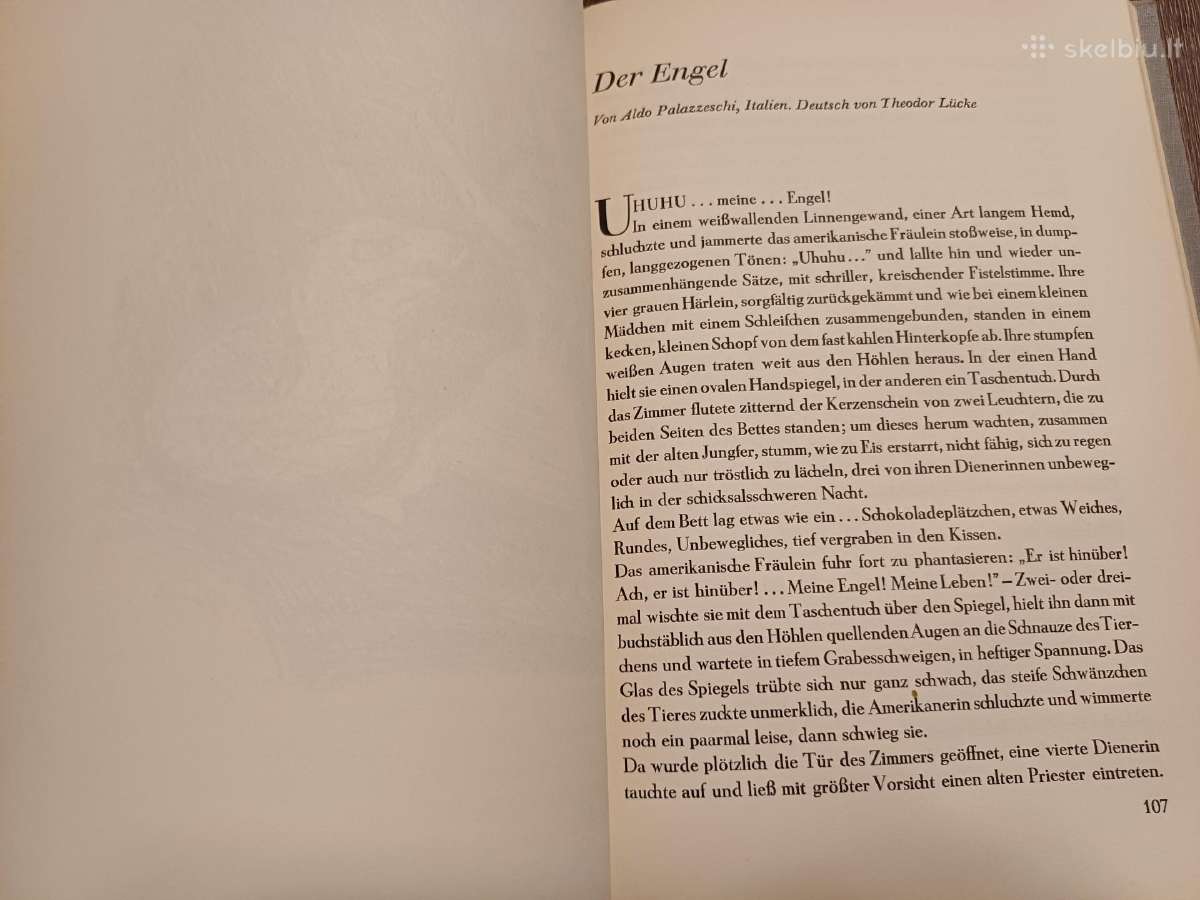 skelbiu.lt
Der Engel
Von Aldo Palazzeschi, Italien. Deutsch von Theodor Lücke
UHUHU ... meine ... Engel!
In einem weißwallenden Linnengewand, einer Art langem Hemd,
schluchzte und jammerte das amerikanische Fräulein stoßweise, in dump-
fen, langgezogenen Tönen: „Uhuhu...” und lallte hin und wieder un-
zusammenhängende Sätze, mit schriller, kreischender Fistelstimme. Ihre
vier grauen Härlein, sorgfältig zurückgekämmt und wie bei einem kleinen
Mädchen mit einem Schleifchen zusammengebunden, standen in einem
kecken, kleinen Schopf von dem fast kahlen Hinterkopfe ab. Ihre stumpfen
weißen Augen traten weit aus den Höhlen heraus. In der einen Hand
hielt sie einen ovalen Handspiegel, in der anderen ein Taschentuch. Durch
das Zimmer flutete zitternd der Kerzenschein von zwei Leuchtern, die zu
beiden Seiten des Bettes standen; um dieses herum wachten, zusammen
mit der alten Jungfer, stumm, wie zu Eis erstarrt, nicht fähig, sich zu regen
oder auch nur tröstlich zu lächeln, drei von ihren Dienerinnen unbeweg-
lich in der schicksalsschweren Nacht.
Auf dem Bett lag etwas wie ein ... Schokoladeplätzchen, etwas Weiches,
Rundes, Unbewegliches, tief vergraben in den Kissen.
Das amerikanische Fräulein fuhr fort zu phantasieren: „Er ist hinüber!
Ach, er ist hinüber! ... Meine Engel! Meine Leben!” – Zwei- oder drei-
mal wischte sie mit dem Taschentuch über den Spiegel, hielt ihn dann mit
buchstäblich aus den Höhlen quellenden Augen an die Schnauze des Tier-
chens und wartete in tiefem Grabesschweigen, in heftiger Spannung. Das
Glas des Spiegels trübte sich nur ganz schwach, das steife Schwänzchen
des Tieres zuckte unmerklich, die Amerikanerin schluchzte und wimmerte
noch ein paarmal leise, dann schwieg sie.
Da wurde plötzlich die Tür des Zimmers geöffnet, eine vierte Dienerin
tauchte auf und ließ mit größter Vorsicht einen alten Priester eintreten.
107